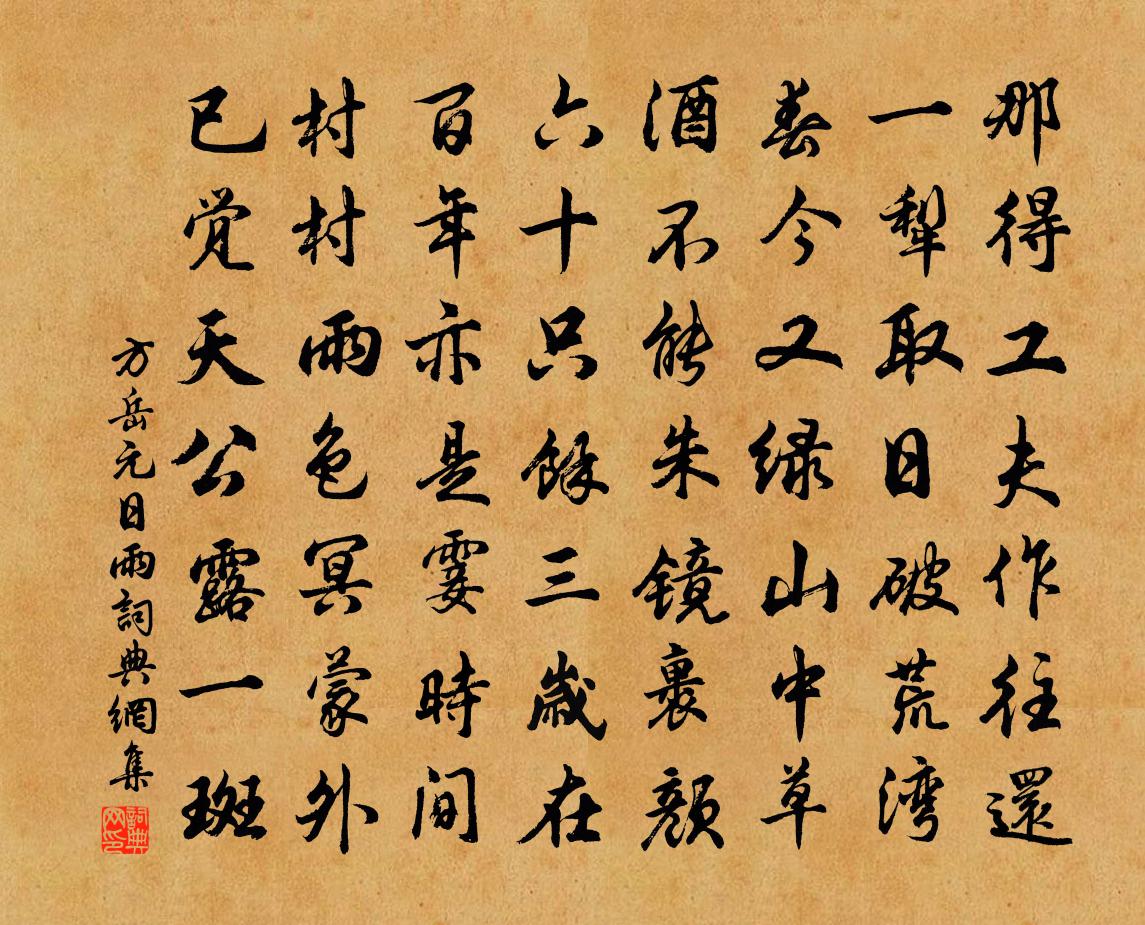 那得工夫作往還
一犁取日破荒湾
春今又绿山中草
酒不能朱镜裹颜
六十只餘三歳在
百年亦是霎時间
村村雨色冥蒙外
已觉天公露一斑
方岳元日雨詞典網集
詞典网印